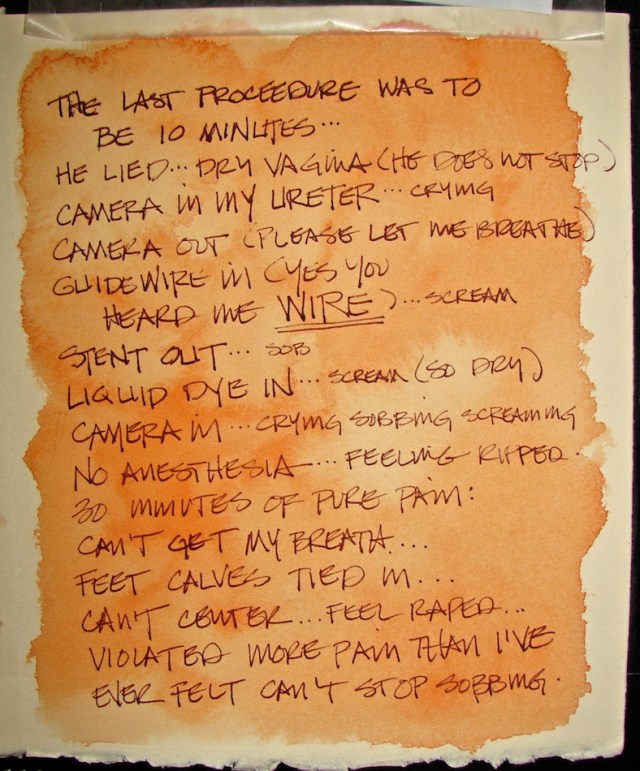 THE LAST PROCEEDURE WAS TO
BE 10 MINUTES...
HE LIED... DRY VAGINA (HE DOES NOT STOP)
CAMERA IN MY URETER... CRYING
CAMERA OUT (PLEASE LET ME BREATHE)
GUIDEWIRE IN (YES YOU
HEARD ME WIRE)... SCREAM
STENT OUT... SOB
LIQUID DYE IN... SCREAM (SO DRY)
CAMERA IN... CRYING SOBBING SCREAMING
NO ANESTHESIA... FEELING RIPPED.
30 MINUTES OF PURE PAIN:
CAN'T GET MY BREATH....
FEET CALVES TIED IN...
CAN'T CENTER... FEEL RAPED...
VIOLATED MORE PAIN THAN I'VE
EVER FELT CAN'T STOP SOBBING.